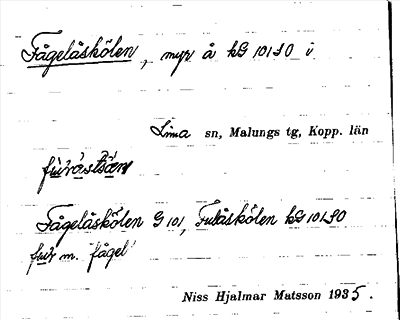 Fågelåskölen, myr å kG 10130 v.
Lima sn, Malungs tg, Kopp. län
Fågelåskölen G 101, Fulåskölen kG 10130
m. fågel
Niss Hjalmar Matsson 1935.